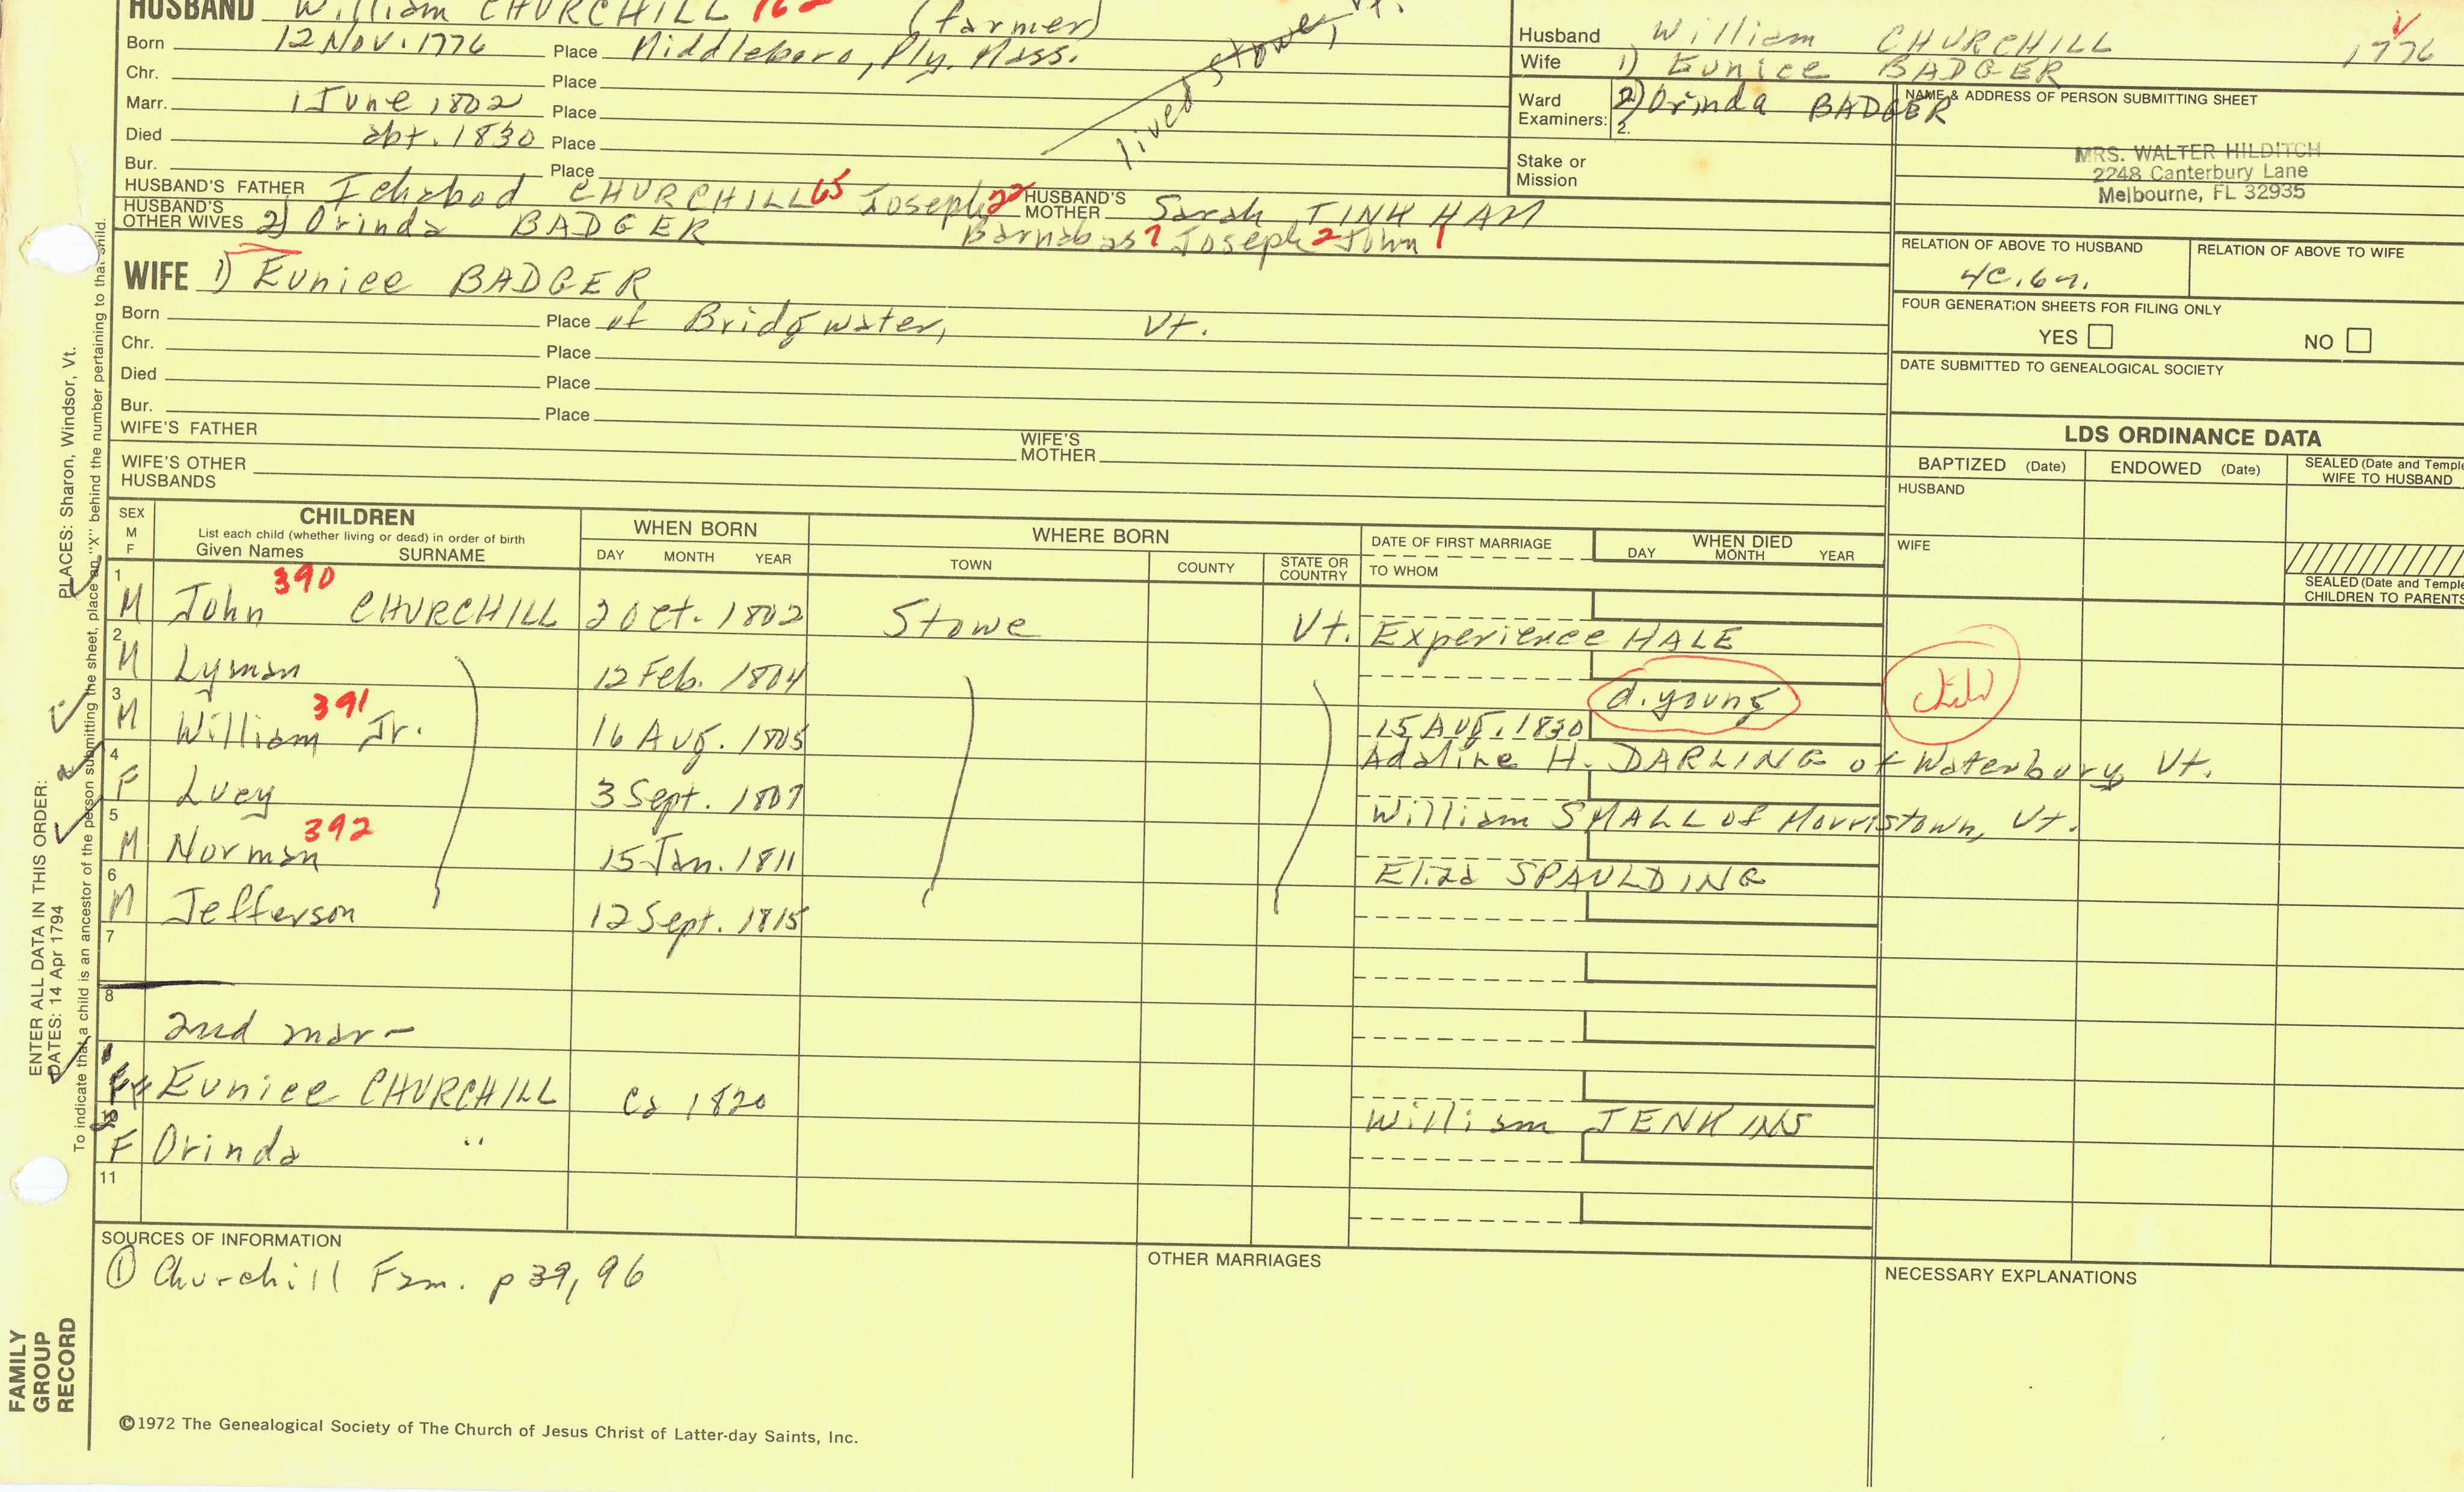 HUSBAND William CHURCHILL 162 (farmer)
Born 12 Nov. 1776 Place Middleboro, Ply. Mass.
Chr. Place
Marr. 1 June 1802 Place
Died abt. 1830 Place
Bur. Place
lived Stowe, Vt.
HUSBAND'S FATHER Ichabod CHURCHILL 65 Joseph 22 HUSBAND'S MOTHER Sarah TINKHAM
HUSBAND'S OTHER WIVES 2) Orinda BADGER Barnabas 7 Joseph 2 John 1
WIFE 1) Eunice BADGER
Born Place of Bridgwater, Vt.
Chr. Place
Died Place
Bur. Place
WIFE'S FATHER WIFE'S MOTHER
WIFE'S OTHER HUSBANDS
Husband William CHURCHILL 1776
Wife 1) Eunice BADGER
2) Orinda BADGER
Ward Examiners: 2.
Stake or Mission
NAME & ADDRESS OF PERSON SUBMITTING SHEET
MRS. WALTER HILDITCH
2248 Canterbury Lane
Melbourne, FL 32935
RELATION OF ABOVE TO HUSBAND RELATION OF ABOVE TO WIFE
FOUR GENERATION SHEETS FOR FILING ONLY
YES NO
DATE SUBMITTED TO GENEALOGICAL SOCIETY
LDS ORDINANCE DATA
BAPTIZED (Date) ENDOWED (Date) SEALED (Date and Temple
WIFE TO HUSBAND
HUSBAND
WIFE
SEALED (Date and Temple
CHILDREN TO PARENTS
SEX M F CHILDREN WHEN BORN WHERE BORN DATE OF FIRST MARRIAGE WHEN DIED
List each child (whether living or dead) in order of birth
Given Names SURNAME DAY MONTH YEAR TOWN COUNTY STATE OR COUNTRY TO WHOM DAY MONTH YEAR
1 M John 390 CHURCHILL 2 Oct. 1802 Stowe Vt. Experience HALE
2 M Lyman 12 Feb. 1804 d. young child
3 M William Jr. 391 16 Aug. 1805 15 Aug. 1830
Adaline H. DARLING of Waterbury Vt.
4 F Lucy 3 Sept. 1807 William SMALL of Morristown, Vt.
5 M Norman 392 15 Jan. 1811 Eliza SPAULDING
6 M Jefferson 12 Sept. 1815
7
8 2nd mar-
Eunice CHURCHILL ca 1820 William JENKINS
F Orinda "
11
SOURCES OF INFORMATION
① Churchill Fam. p 39, 96
OTHER MARRIAGES
NECESSARY EXPLANATIONS
©1972 The Genealogical Society of The Church of Jesus Christ of Latter-day Saints, Inc.
FAMILY GROUP RECORD
ENTER ALL DATA IN THIS ORDER:
DATES: 14 Apr 1794 PLACES: Sharon, Windsor, Vt.
To indicate that a child is an ancestor of the person submitting the sheet, place an "X" behind the number pertaining to that child.